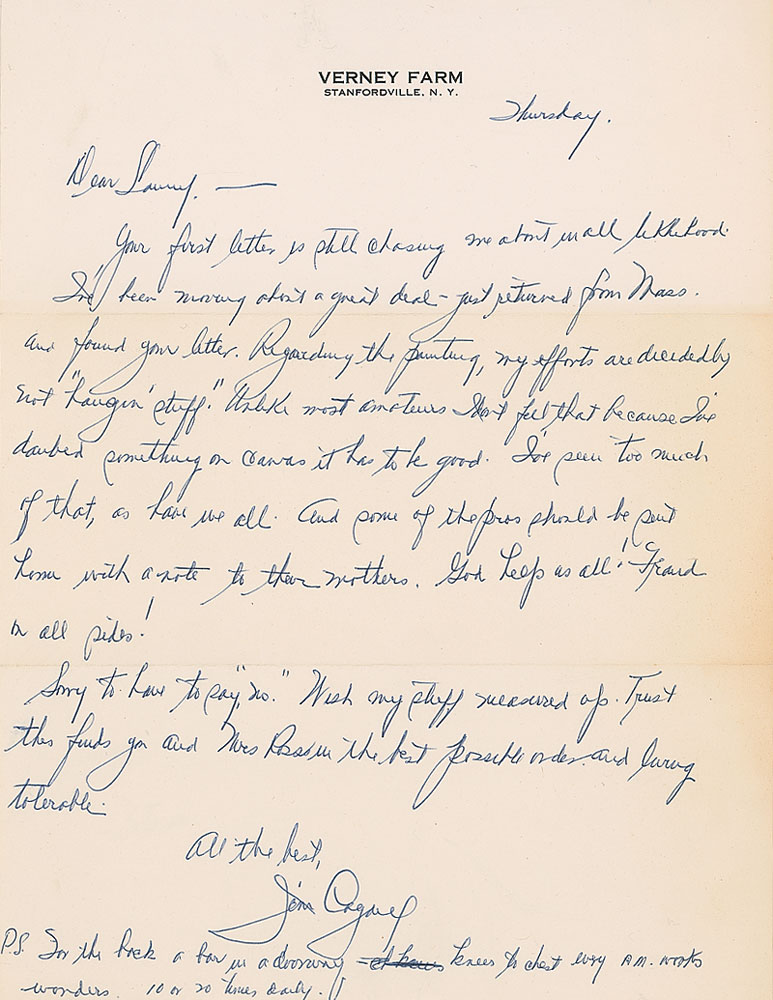 VERNEY FARM
STANFORDVILLE, N. Y.
Thursday.
Dear
Your first letter is still chasing me about in all likelihood.
I've been moving about a great deal - just returned from Mass.
and found your letter. Regarding the painting, my efforts are decidedly
not "hangin' stuff." Unlike most amateurs I don't feel that because I've
daubed something on canvas it has to be good. I've seen too much
of that, as have we all. And some of the pros should be sent
home with a note to their mothers. God help us all! Fraud
on all sides!
Sorry to have to say, "no." Wish my stuff measured up. Trust
this finds you and Mrs in the best possible order and living
tolerable.
All the best,
Jim Cagney
P.S. For the back a bar in a doorway = knees to chest every A.M. works
wonders. 10 or 20 times daily.